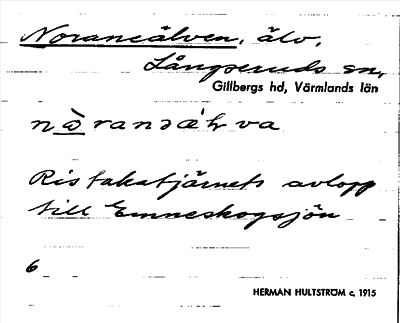 Noraneälven, älv,
Långseruds sn,
Gillbergs hd, Värmlands län
Ristakatjärnets avlopp
till Emneskogsjön
6
HERMAN HULTSTRÖM c. 1915